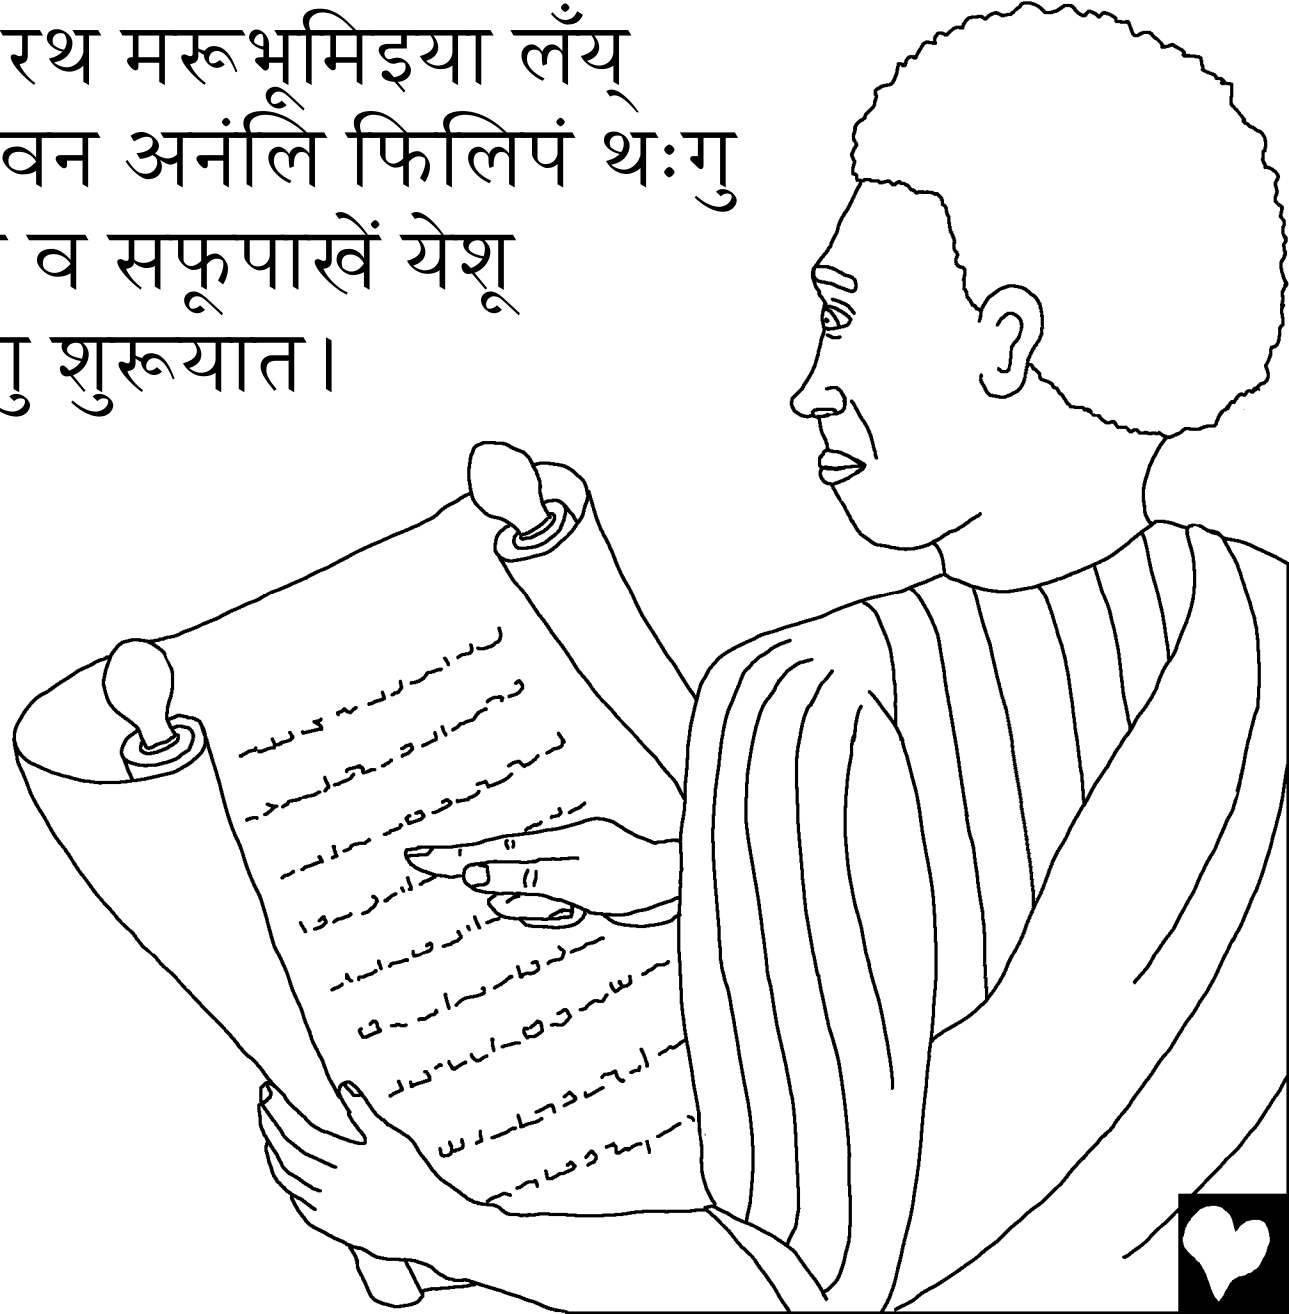 रथ मरूभूमिइया लँय्
वन अनंलि फिलिपं थःगु
व सफूपाखें येशू
गु शुरूयात।